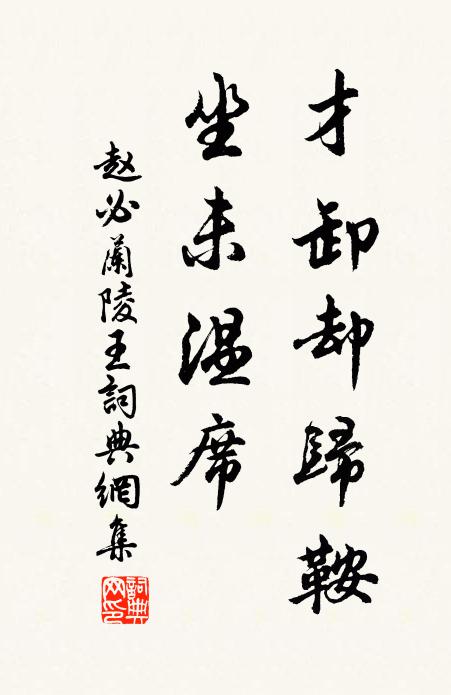 才卸却歸鞍
坐未温席
赵必蘭陵王詞典網集
詞典网印